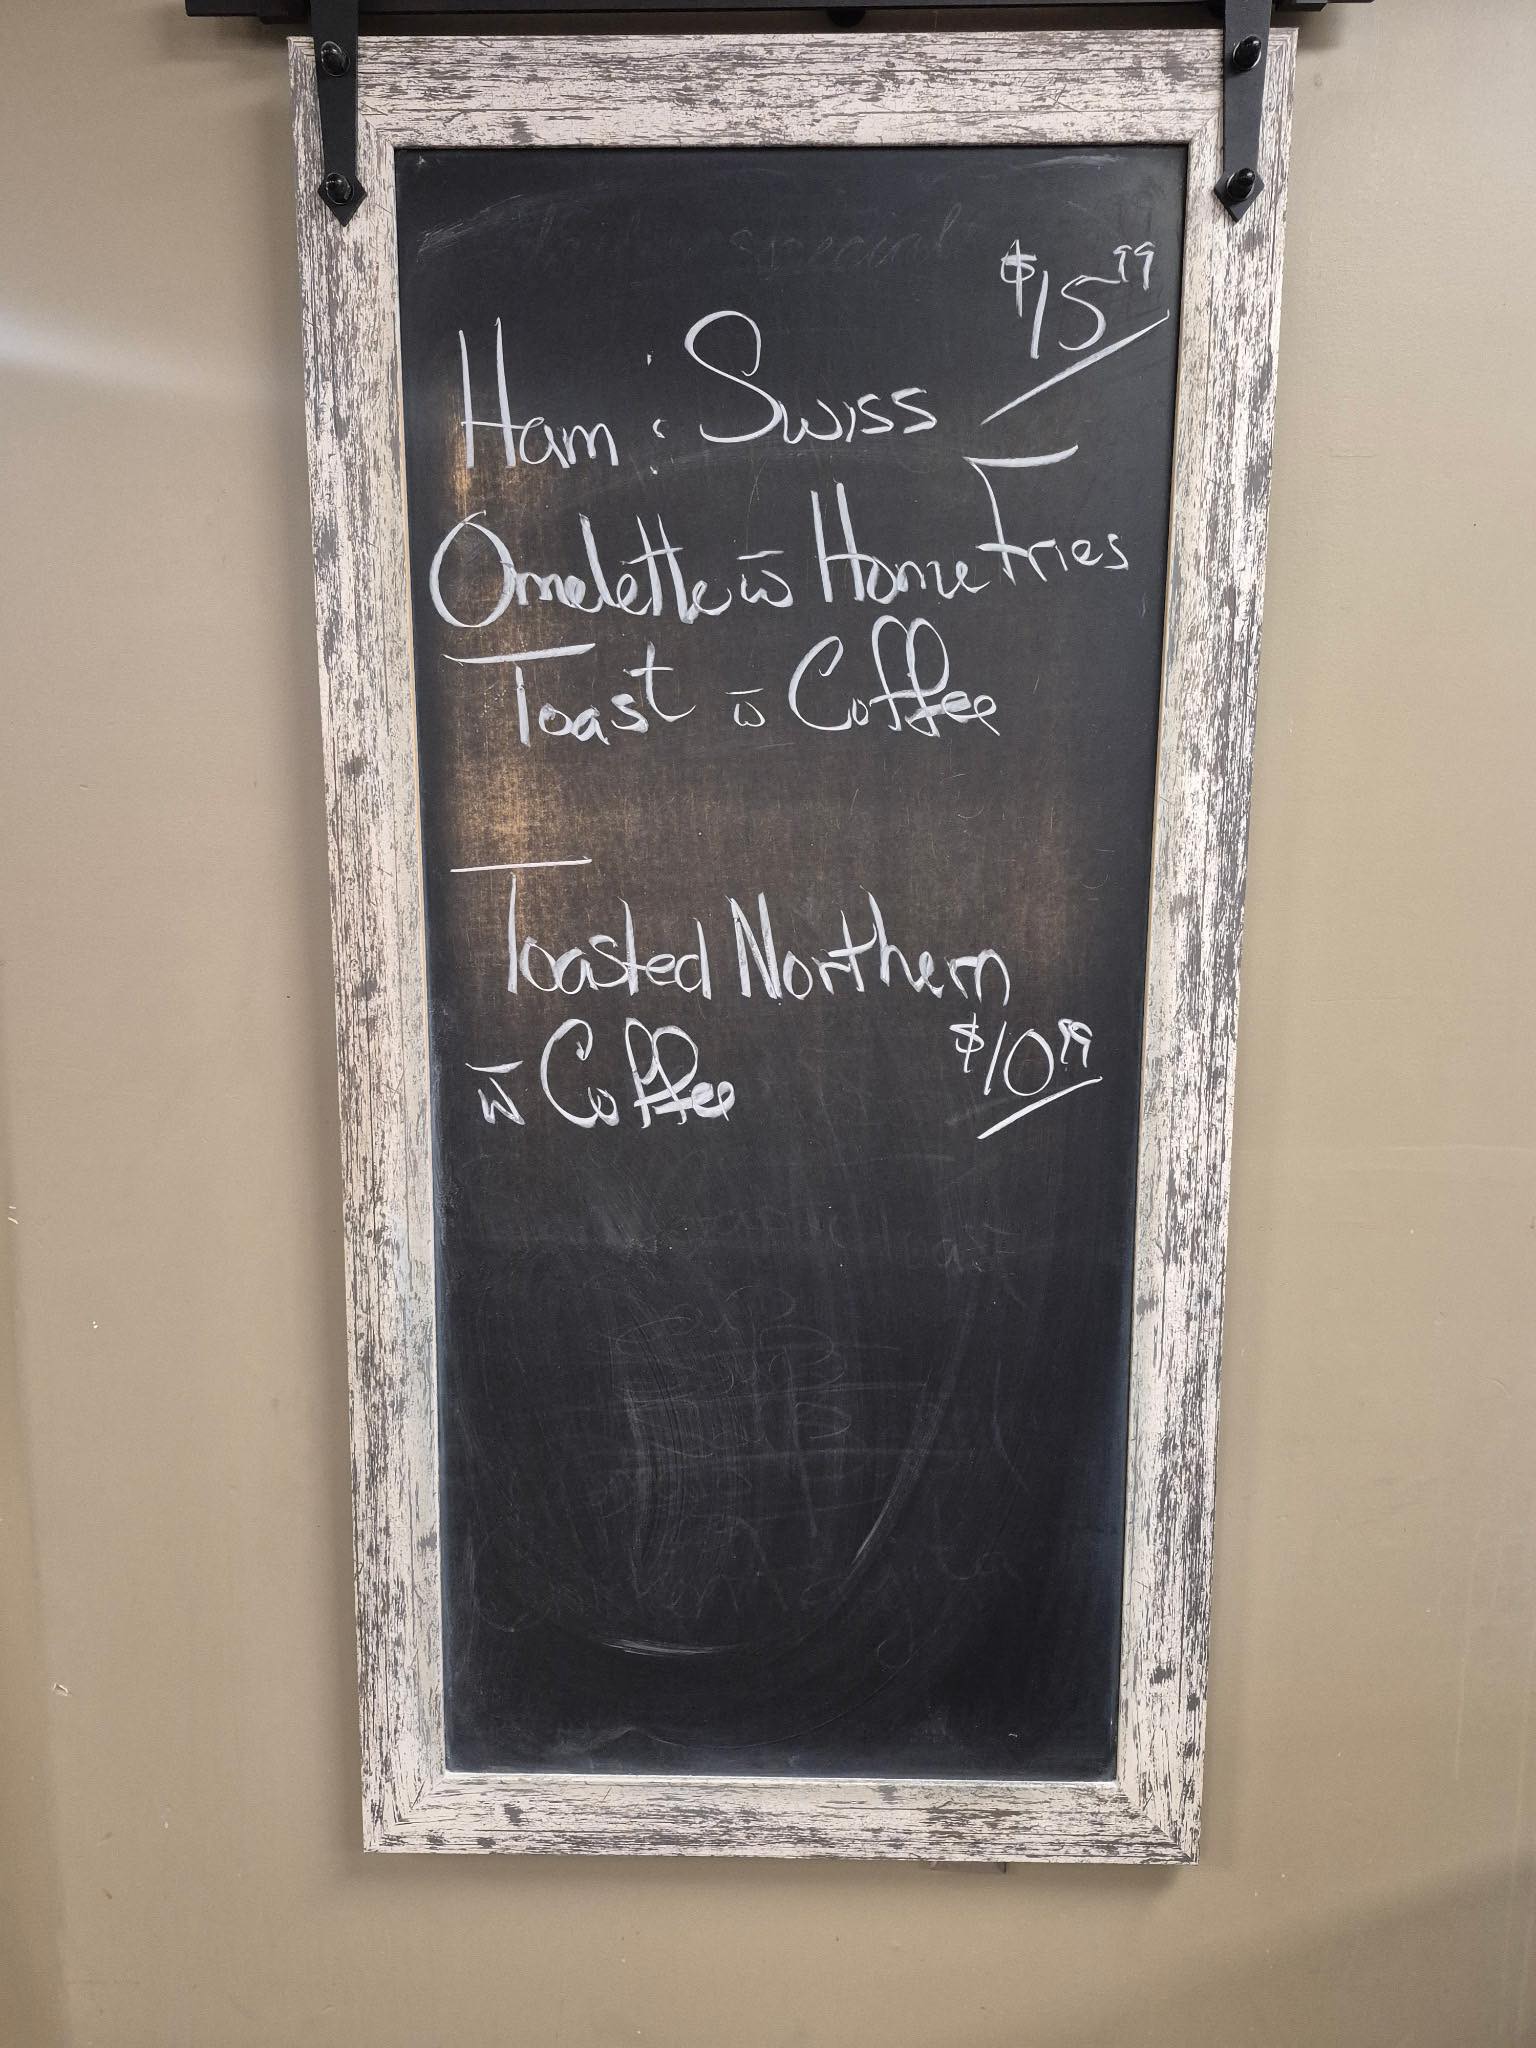 $15.99
Ham & Swiss
Omelette w̄ Home Fries
Toast w̄ Coffee
Toasted Northern
w̄ Coffee $10.99